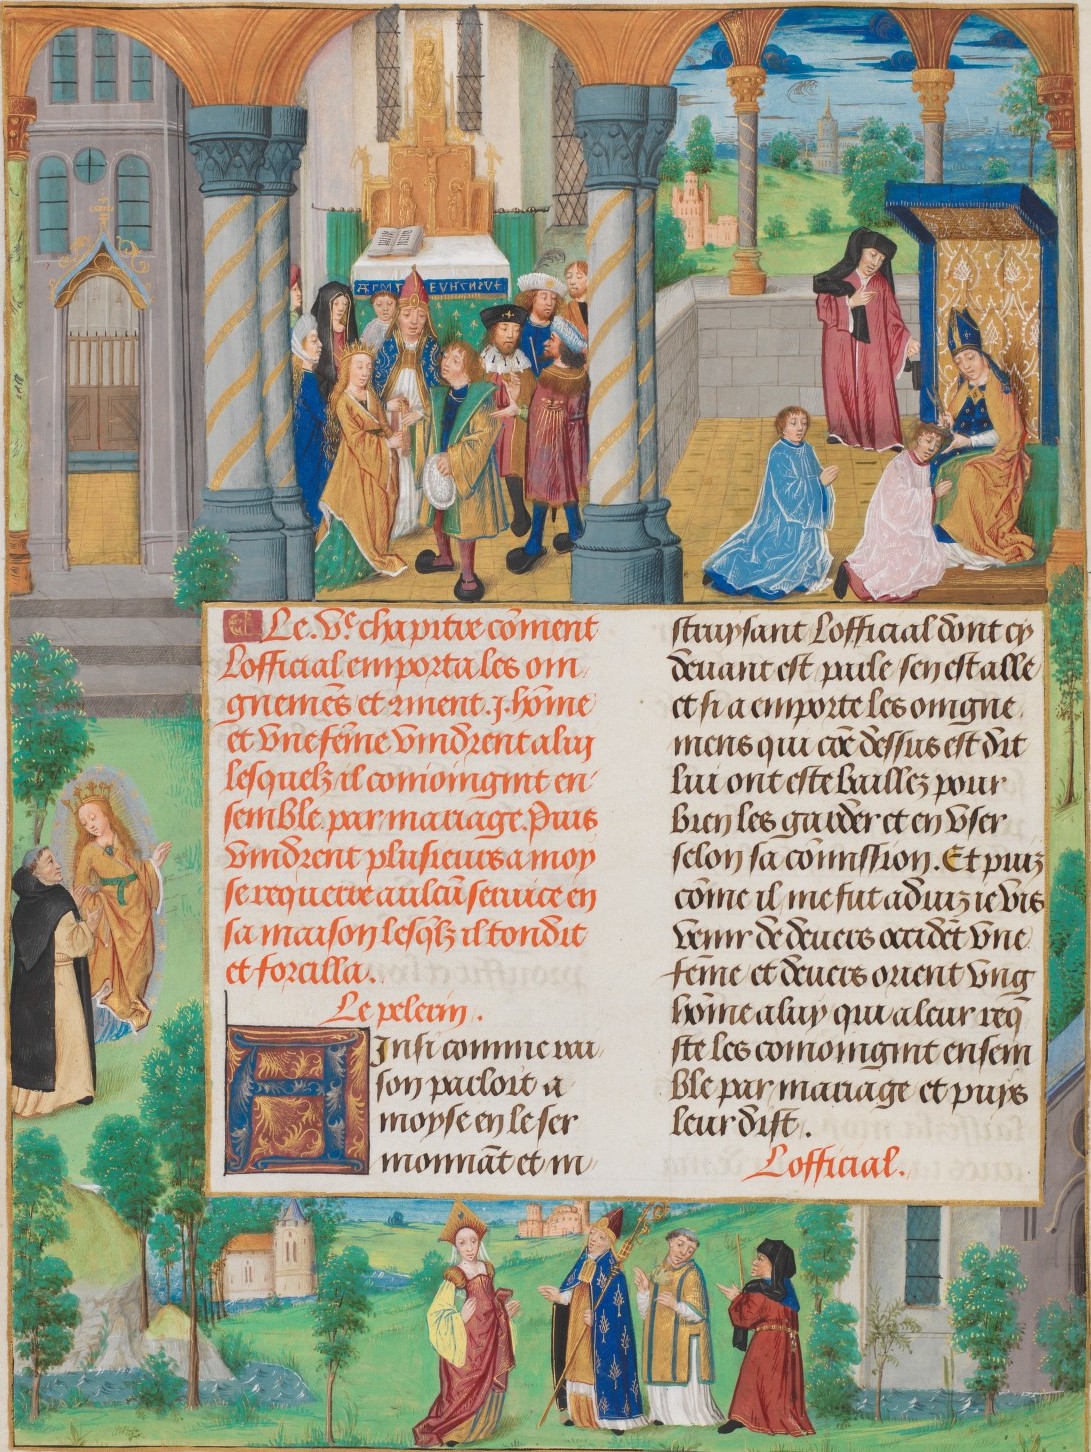 Le .Ve. chapitre cõment
Lofficial emporta les om
gnemẽs et cment .j. hõme
et vne fẽme vindrent a luy
lesquelz il conioingint en
semble par mariage. Puis
vindrent plusieurs a moy
se requerre aulcũ seruice en
sa maison lesq̃lz il tondit
et forcilla.
Le pelerin.
AInsi comme rai
son parloit a
moyse en le ser
monnãt et in
struysant Lofficial dont cy
deuant est parle sen est alle
et si a emporte les oingne
mens qui cõe dessus est dit
lui ont este baillez pour
bien les garder et en vser
selon sa cõmission. Et puis
cõme il me fut aduiz ie vis
venir de deuers occidẽt vne
fẽme et deuers orient vng
hõme a luy qui a leur req̃
ste les conioingint ensem
ble par mariage et puys
leur dist.
Lofficial.